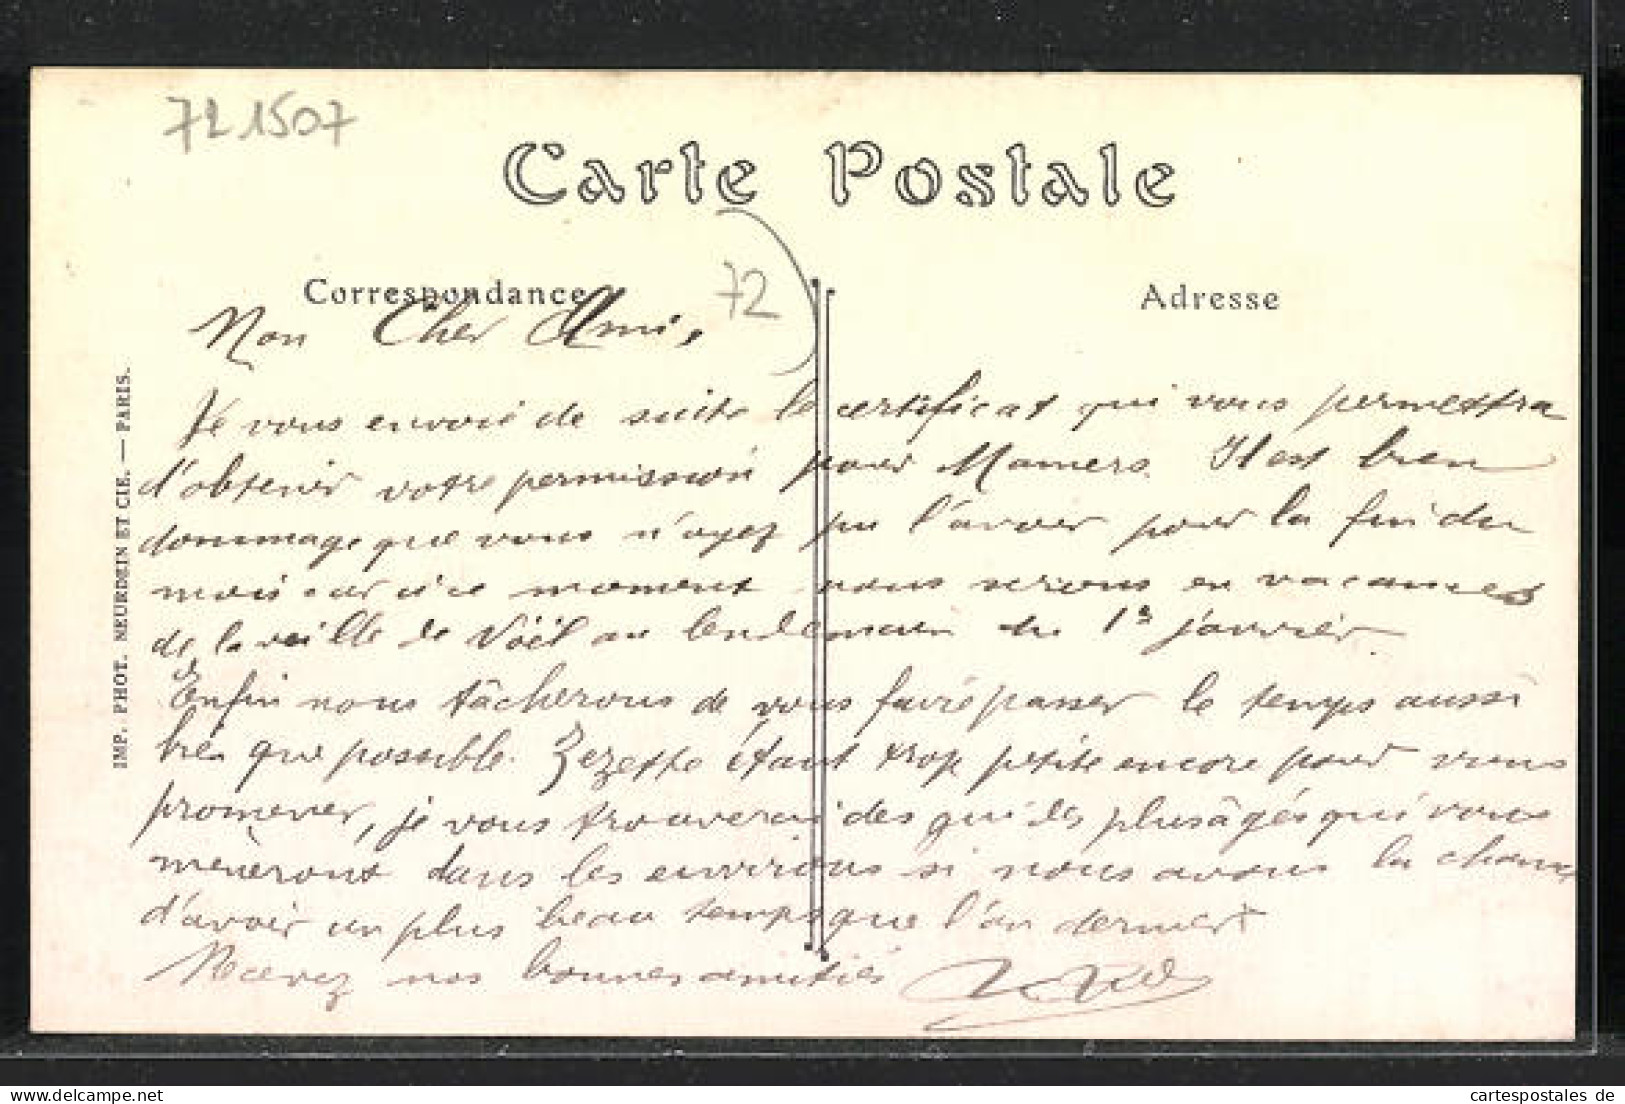 721507
Carte Postale
Correspondance
72
Adresse
Mon Cher Ami,
Je vous envoie de suite le certificat qui vous permettra
d'obtenir votre permission pour Mamers. Il est bien
dommage que vous n'ayez pu l'avoir pour la fin du
mois car à ce moment nous serions en vacances
de la veille de Noël au lendemain du 1er janvier.
Enfin nous tâcherons de vous faire passer le temps aussi
bien que possible. Zezette étant trop petite encore pour vous
promener, je vous trouverai des guides plus âgés qui vous
mèneront dans les environs si nous avons la chance
d'avoir un plus beau temps que l'an dernier
Recevez nos bonnes amitiés
IMP. PHOT. NEURDEIN ET CIE. — PARIS.
www.delcampe.net
cartespostales de